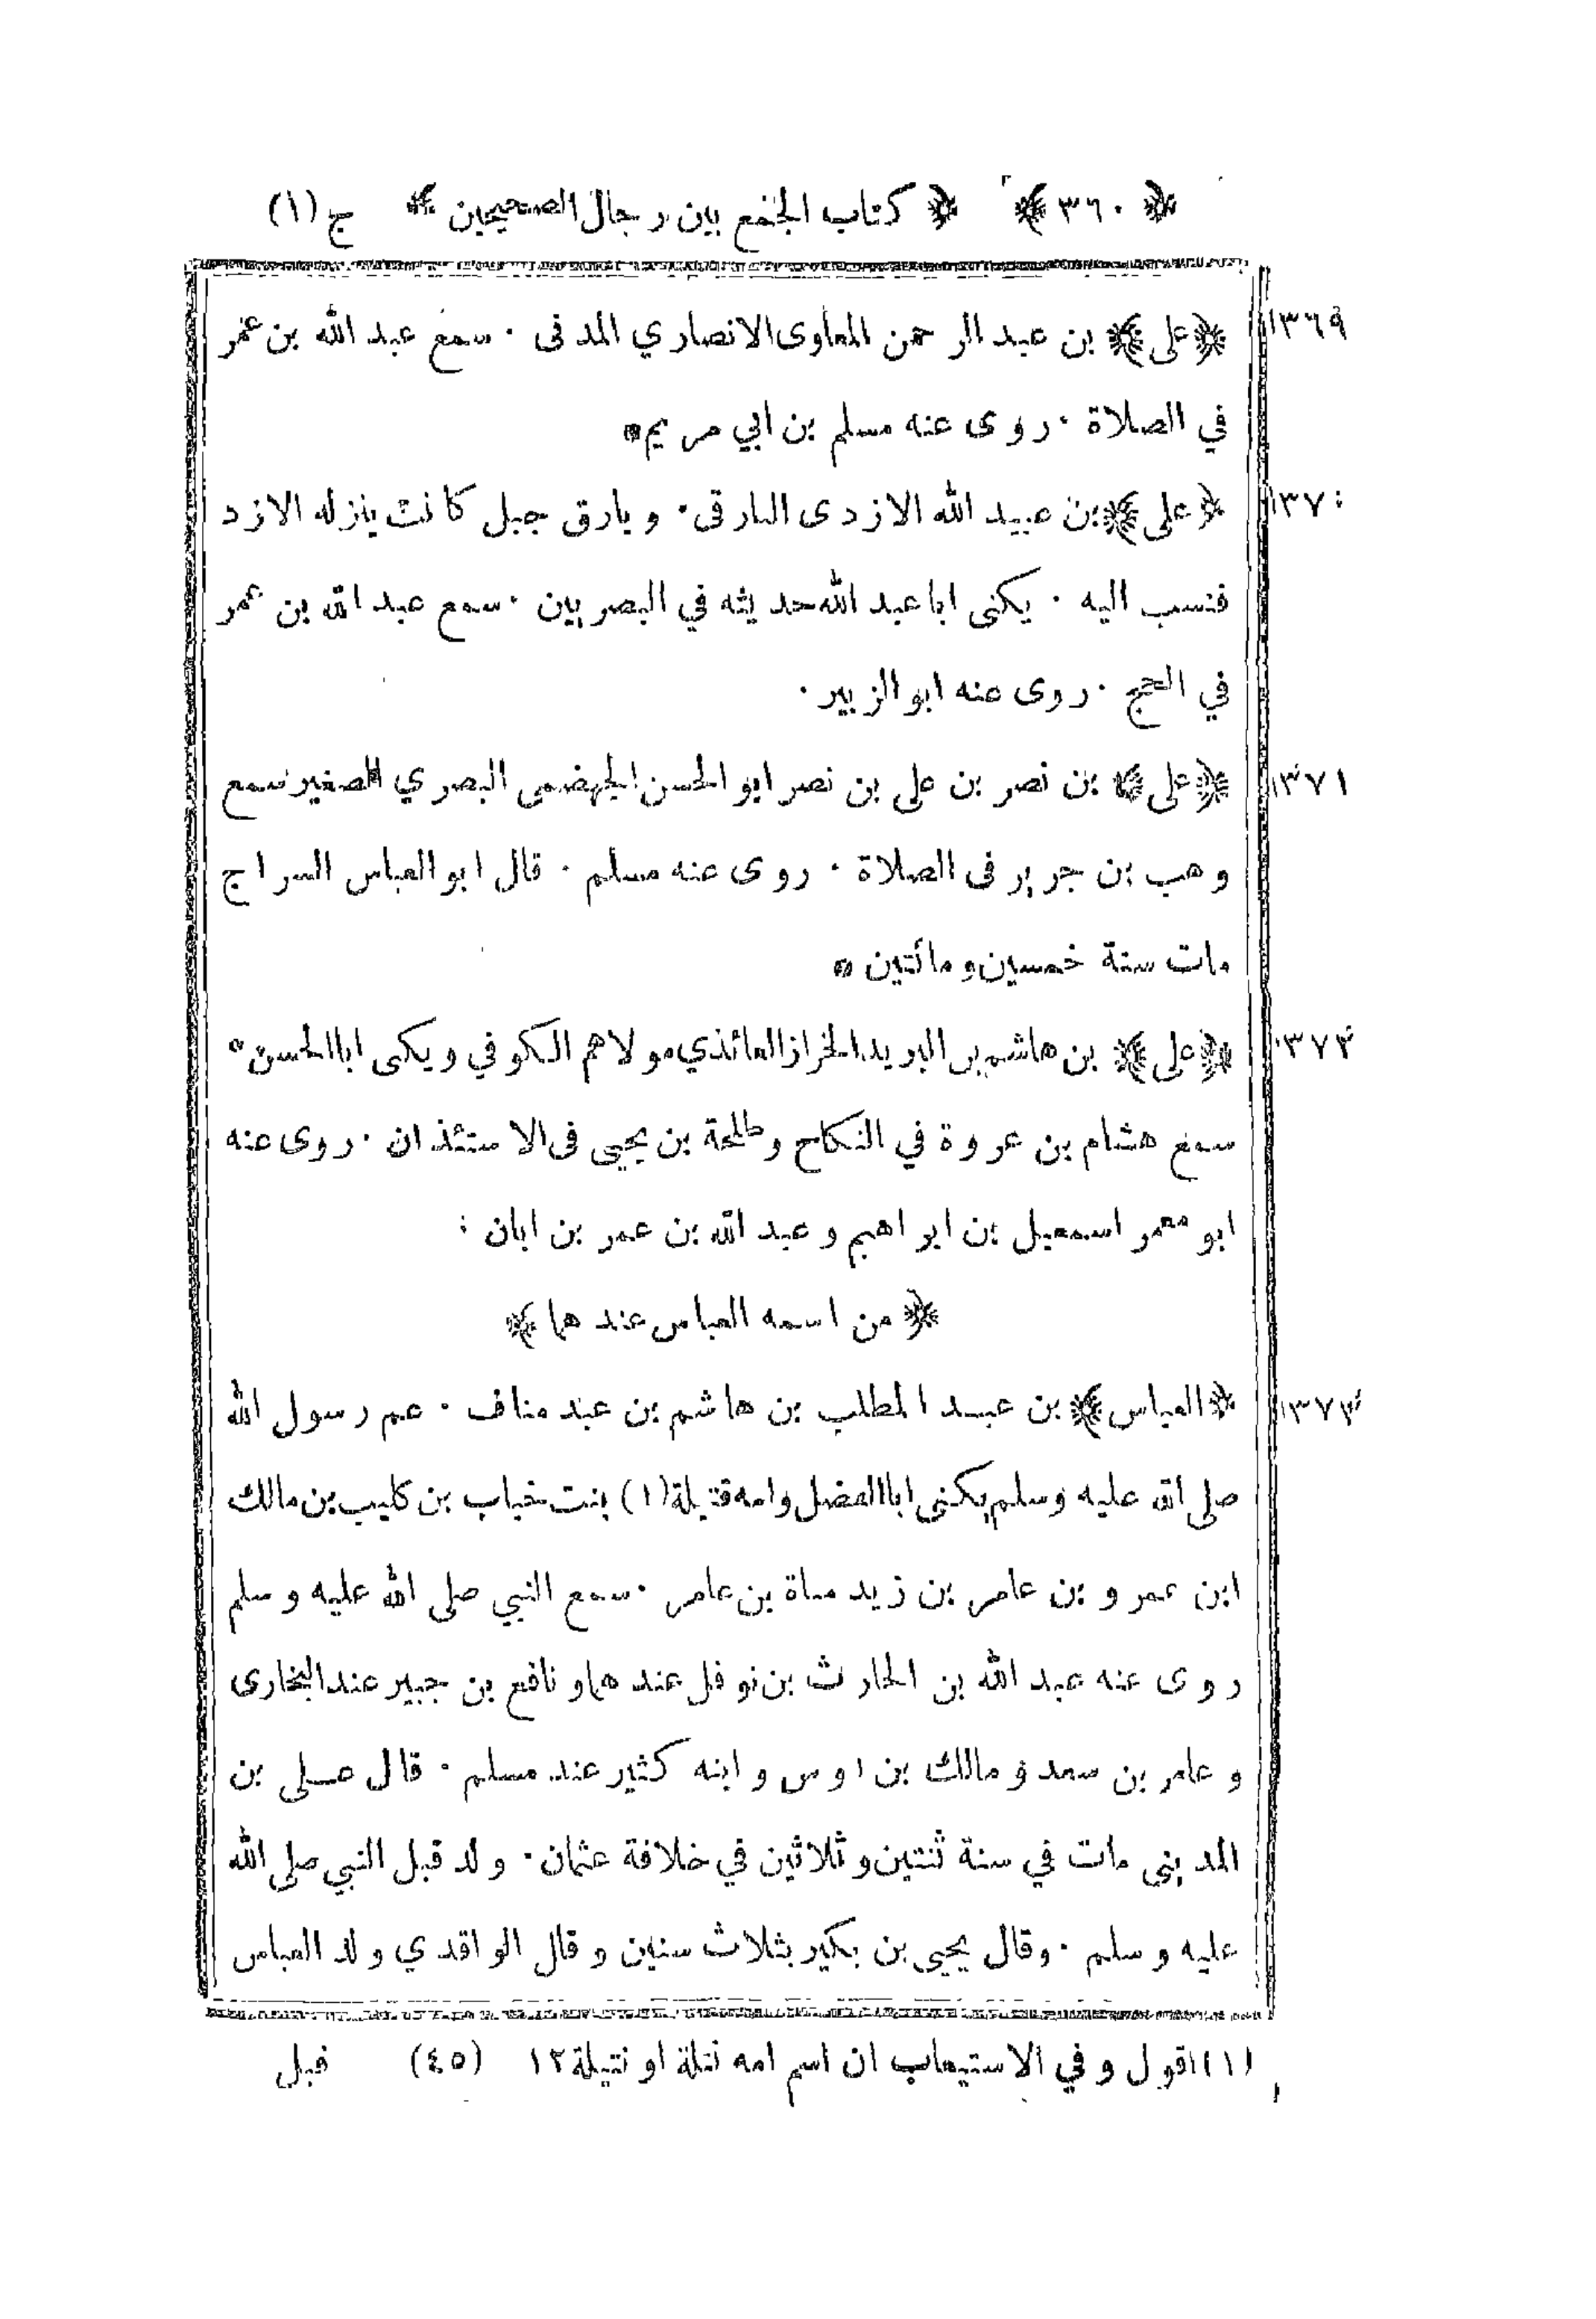 ﴿٣٦٠﴾ ﴿كتاب الجمع بين رجال الصحيحين﴾ ج (١)
١٣٦٩ ﴿على﴾ بن عبد الرحمن المعاوى الانصاري المدنى ٠ سمع عبد الله بن عمر
في الصلاة ٠ روى عنه مسلم بن ابي مريم
١٣٧٠ ﴿على﴾ بن عبيد الله الازدى البارقى ٠ وبارق جبل كانت ينزله الازد
فنسب اليه ٠ يكنى ابا عبد الله حديثه في البصريين ٠ سمع عبد الله بن عمر
في الحج ٠ روى عنه ابو الزبير ٠
١٣٧١ ﴿على﴾ بن نصر بن على بن نصر ابو الحسن الجهضمى البصري الصغير سمع
وهب بن جرير فى الصلاة ٠ روى عنه مسلم ٠ قال ابو العباس السراج
مات سنة خمسين ومائتين
١٣٧٢ ﴿على﴾ بن هاشم بن البريد الخراز العائذي مولاهم الكوفي ويكنى ابا الحسن
سمع هشام بن عروة في النكاح وطلحة بن يحيى فى الاستئذان ٠ روى عنه
ابو معمر اسمعيل بن ابراهيم وعبد الله بن عمر بن ابان
﴿من اسمه العباس عندهما﴾
١٣٧٣ ﴿العباس﴾ بن عبد المطلب بن هاشم بن عبد مناف ٠ عم رسول الله
صلى الله عليه وسلم يكنى ابا الفضل وامه قتيلة (١) بنت خباب بن كليب بن مالك
ابن عمرو بن عامر بن زيد مناة بن عامر ٠ سمع النبي صلى الله عليه وسلم
روى عنه عبد الله بن الحارث بن نوفل عندهما ونافع بن جبير عند البخارى
وعامر بن سعد ومالك بن اوس وابنه كثير عند مسلم ٠ قال على بن
المدينى مات في سنة ثنتين وثلاثين في خلافة عثمان ٠ ولد قبل النبي صلى الله
عليه وسلم ٠ وقال يحيى بن بكير بثلاث سنين وقال الواقدي ولد العباس
(١) اقول وفي الاستيعاب ان اسم امه نتلة او نتيلة ١٢ (٤٥) قبل